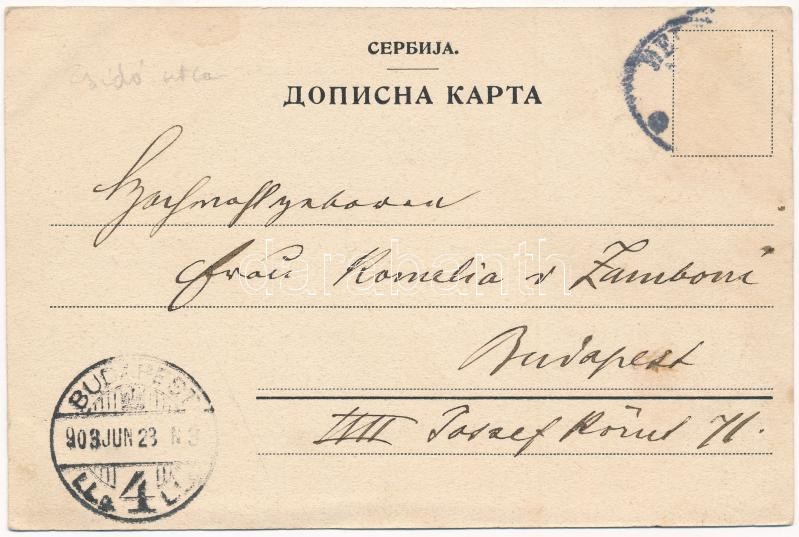 СЕРБИЈА.
ДОПИСНА КАРТА
Zsidó utca
Hochwohlgeboren
Frau Kornelia v Zamboni
Budapest
VIII József Körut 71.
BUDAPEST
903 JUN 23
4
darabanth